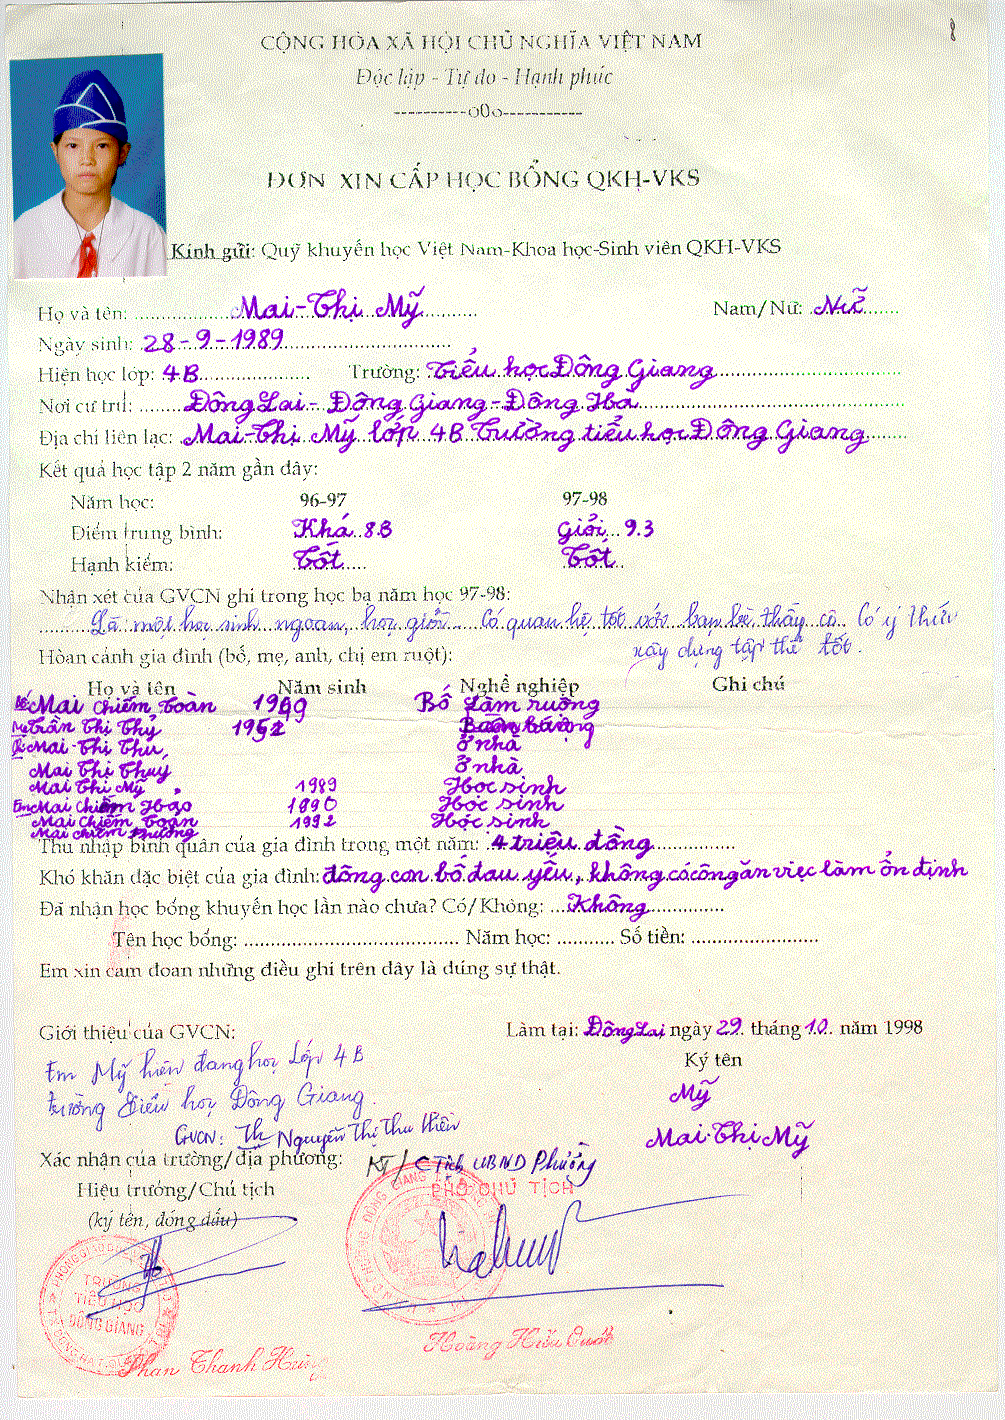 8
CỘNG HÒA XÃ HỘI CHỦ NGHĨA VIỆT NAM
Độc lập - Tự do - Hạnh phúc
----------o0o-----------
ĐƠN XIN CẤP HỌC BỔNG QKH-VKS
Kính gửi: Quỹ khuyến học Việt Nam-Khoa học-Sinh viên QKH-VKS
Họ và tên: Mai-Thị Mỹ Nam/Nữ: Nữ
Ngày sinh: 28-9-1989
Hiện học lớp: 4B Trường: Tiểu học Đông Giang
Nơi cư trú: Đông Lai - Đông Giang - Đông Hà
Địa chỉ liên lạc: Mai-Thị Mỹ lớp 4B Trường tiểu học Đông Giang
Kết quả học tập 2 năm gần đây:
Năm học: 96-97 97-98
Điểm trung bình: Khá 8.8 Giỏi 9.3
Hạnh kiểm: Tốt Tốt
Nhận xét của GVCN ghi trong học bạ năm học 97-98:
Là một học sinh ngoan, học giỏi. Có quan hệ tốt với bạn bè thầy cô. Có ý thức
xây dựng tập thể tốt.
Hòan cảnh gia đình (bố, mẹ, anh, chị em ruột):
Họ và tên Năm sinh Nghề nghiệp Ghi chú
Mai Chiếm Toàn Bố Làm ruộng
Mẹ Trần Thị Thỷ 1952
Mai-Thị Thu ở nhà
Mai Thị Thuý ở nhà
Mai Thị Mỹ 1989 Học sinh
Em Mai Chiếm Học sinh
Mai Chiếm Toàn 1992 Học sinh
Mai Chiếm Phương
Thu nhập bình quân của gia đình trong một năm: 4 triệu đồng
Khó khăn đặc biệt của gia đình: đông con bố đau yếu, không có công ăn việc làm ổn định
Đã nhận học bổng khuyến học lần nào chưa? Có/Không: Không
Tên học bổng: Năm học: Số tiền:
Em xin cam đoan những điều ghi trên đây là đúng sự thật.
Giới thiệu của GVCN: Làm tại: Đông Lai, ngày 29 tháng 10 năm 1998
Ký tên
Em Mỹ hiện đang học Lớp 4B
Mỹ
trường Tiểu học Đông Giang.
GVCN: Nguyễn Thị Thu Hiền
Mai-Thị Mỹ
Xác nhận của trường/địa phương: KT/ C Tịch UBND Phường
Hiệu trưởng/Chủ tịch PHÓ CHỦ TỊCH
(ký tên, đóng dấu)
TRƯỜNG
TIỂU HỌC
ĐÔNG GIANG
Phan Thanh Hùng
Hoàng Hữu